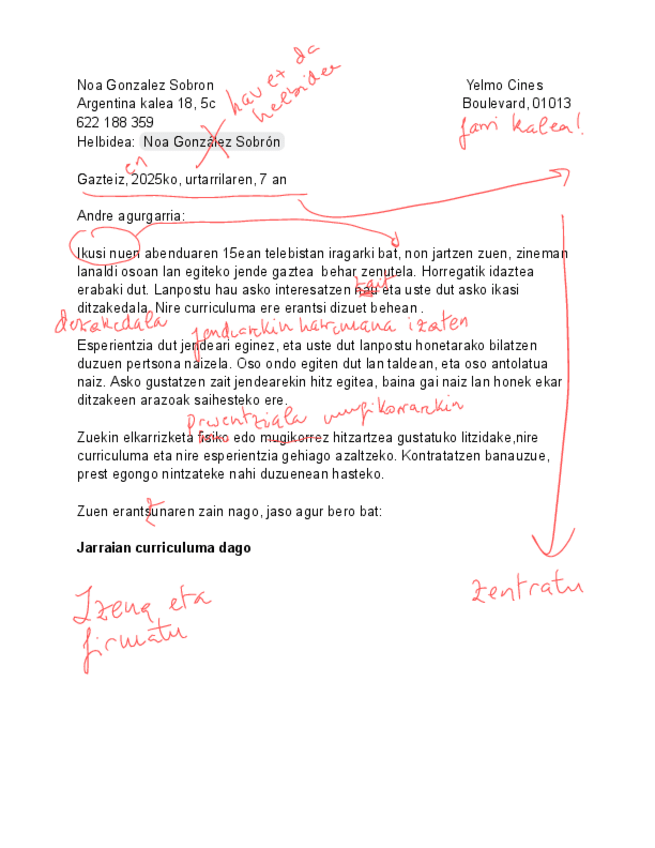 Noa Gonzalez Sobron
Argentina kalea 18, 5c
622 188 359
Helbidea: Noa González Sobrón
hau ez da
helbidea
Yelmo Cines
Boulevard, 01013
Jarri kalea!
en
Gazteiz, 2025ko, urtarrilaren, 7 an
Andre agurgarria:
Ikusi nuen abenduaren 15ean telebistan iragarki bat, non jartzen zuen, zineman
lanaldi osoan lan egiteko jende gaztea behar zenutela. Horregatik idaztea
zait
erabaki dut. Lanpostu hau asko interesatzen nau eta uste dut asko ikasi
ditzakedala. Nire curriculuma ere erantsi dizuet behean .
dezakedala
jendearekin harremana izaten
Esperientzia dut jendeari eginez, eta uste dut lanpostu honetarako bilatzen
duzuen pertsona naizela. Oso ondo egiten dut lan taldean, eta oso antolatua
naiz. Asko gustatzen zait jendearekin hitz egitea, baina gai naiz lan honek ekar
ditzakeen arazoak saihesteko ere.
mugikorrarekin
Zuekin elkarrizketa fisiko edo mugikorrez hitzartzea gustatuko litzidake,nire
curriculuma eta nire esperientzia gehiago azaltzeko. Kontratatzen banauzue,
prest egongo nintzateke nahi duzuenean hasteko.
Zuen erantsunaren zain nago, jaso agur bero bat:
z
Jarraian curriculuma dago
Izena eta
firmatu
zentratu